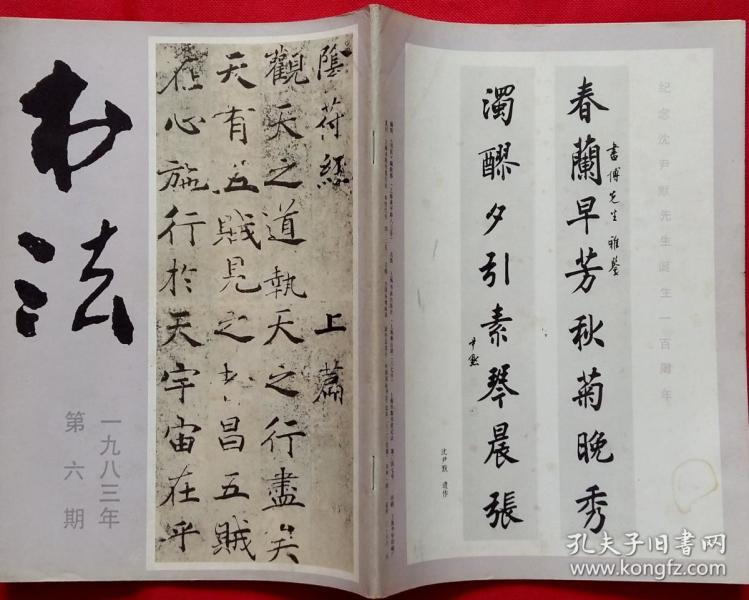 书法
一九八三年
第六期
陰符經 上篇
觀天之道執天之行盡矣
天有五賊見之者昌五賊
在心施行於天宇宙在乎
纪念沈尹默先生诞生一百周年
書博先生雅鑒
春蘭早芳秋菊晚秀
濁醪夕引素琴晨張
尹默
沈尹默 遗作
孔夫子旧书网
www.kongfz.com